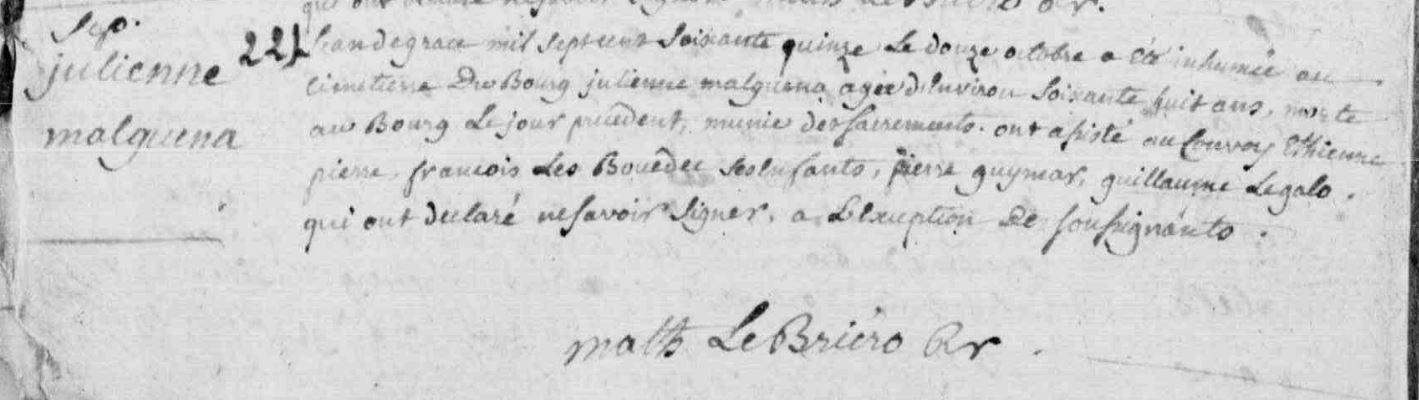 qui ont déclaré ne savoir signer. math Le Briéro Rr.
Sep.
julienne
malguena
221
Lan de grace mil sept cent soixante quinze Le douze octobre a été inhumée au
cimetierre Du Bourg julienne malguena agée d'Environ soixante huit ans, morte
au Bourg Le jour précédent, munie des sacrements. ont assisté au Convoy Ethienne
pierre, francois Les Bouëdec ses Enfants, pierre guymar, guillaume Le galo.
qui ont declaré ne savoir signer, a L'exception De soussignants.
math Le Briéro Rr.